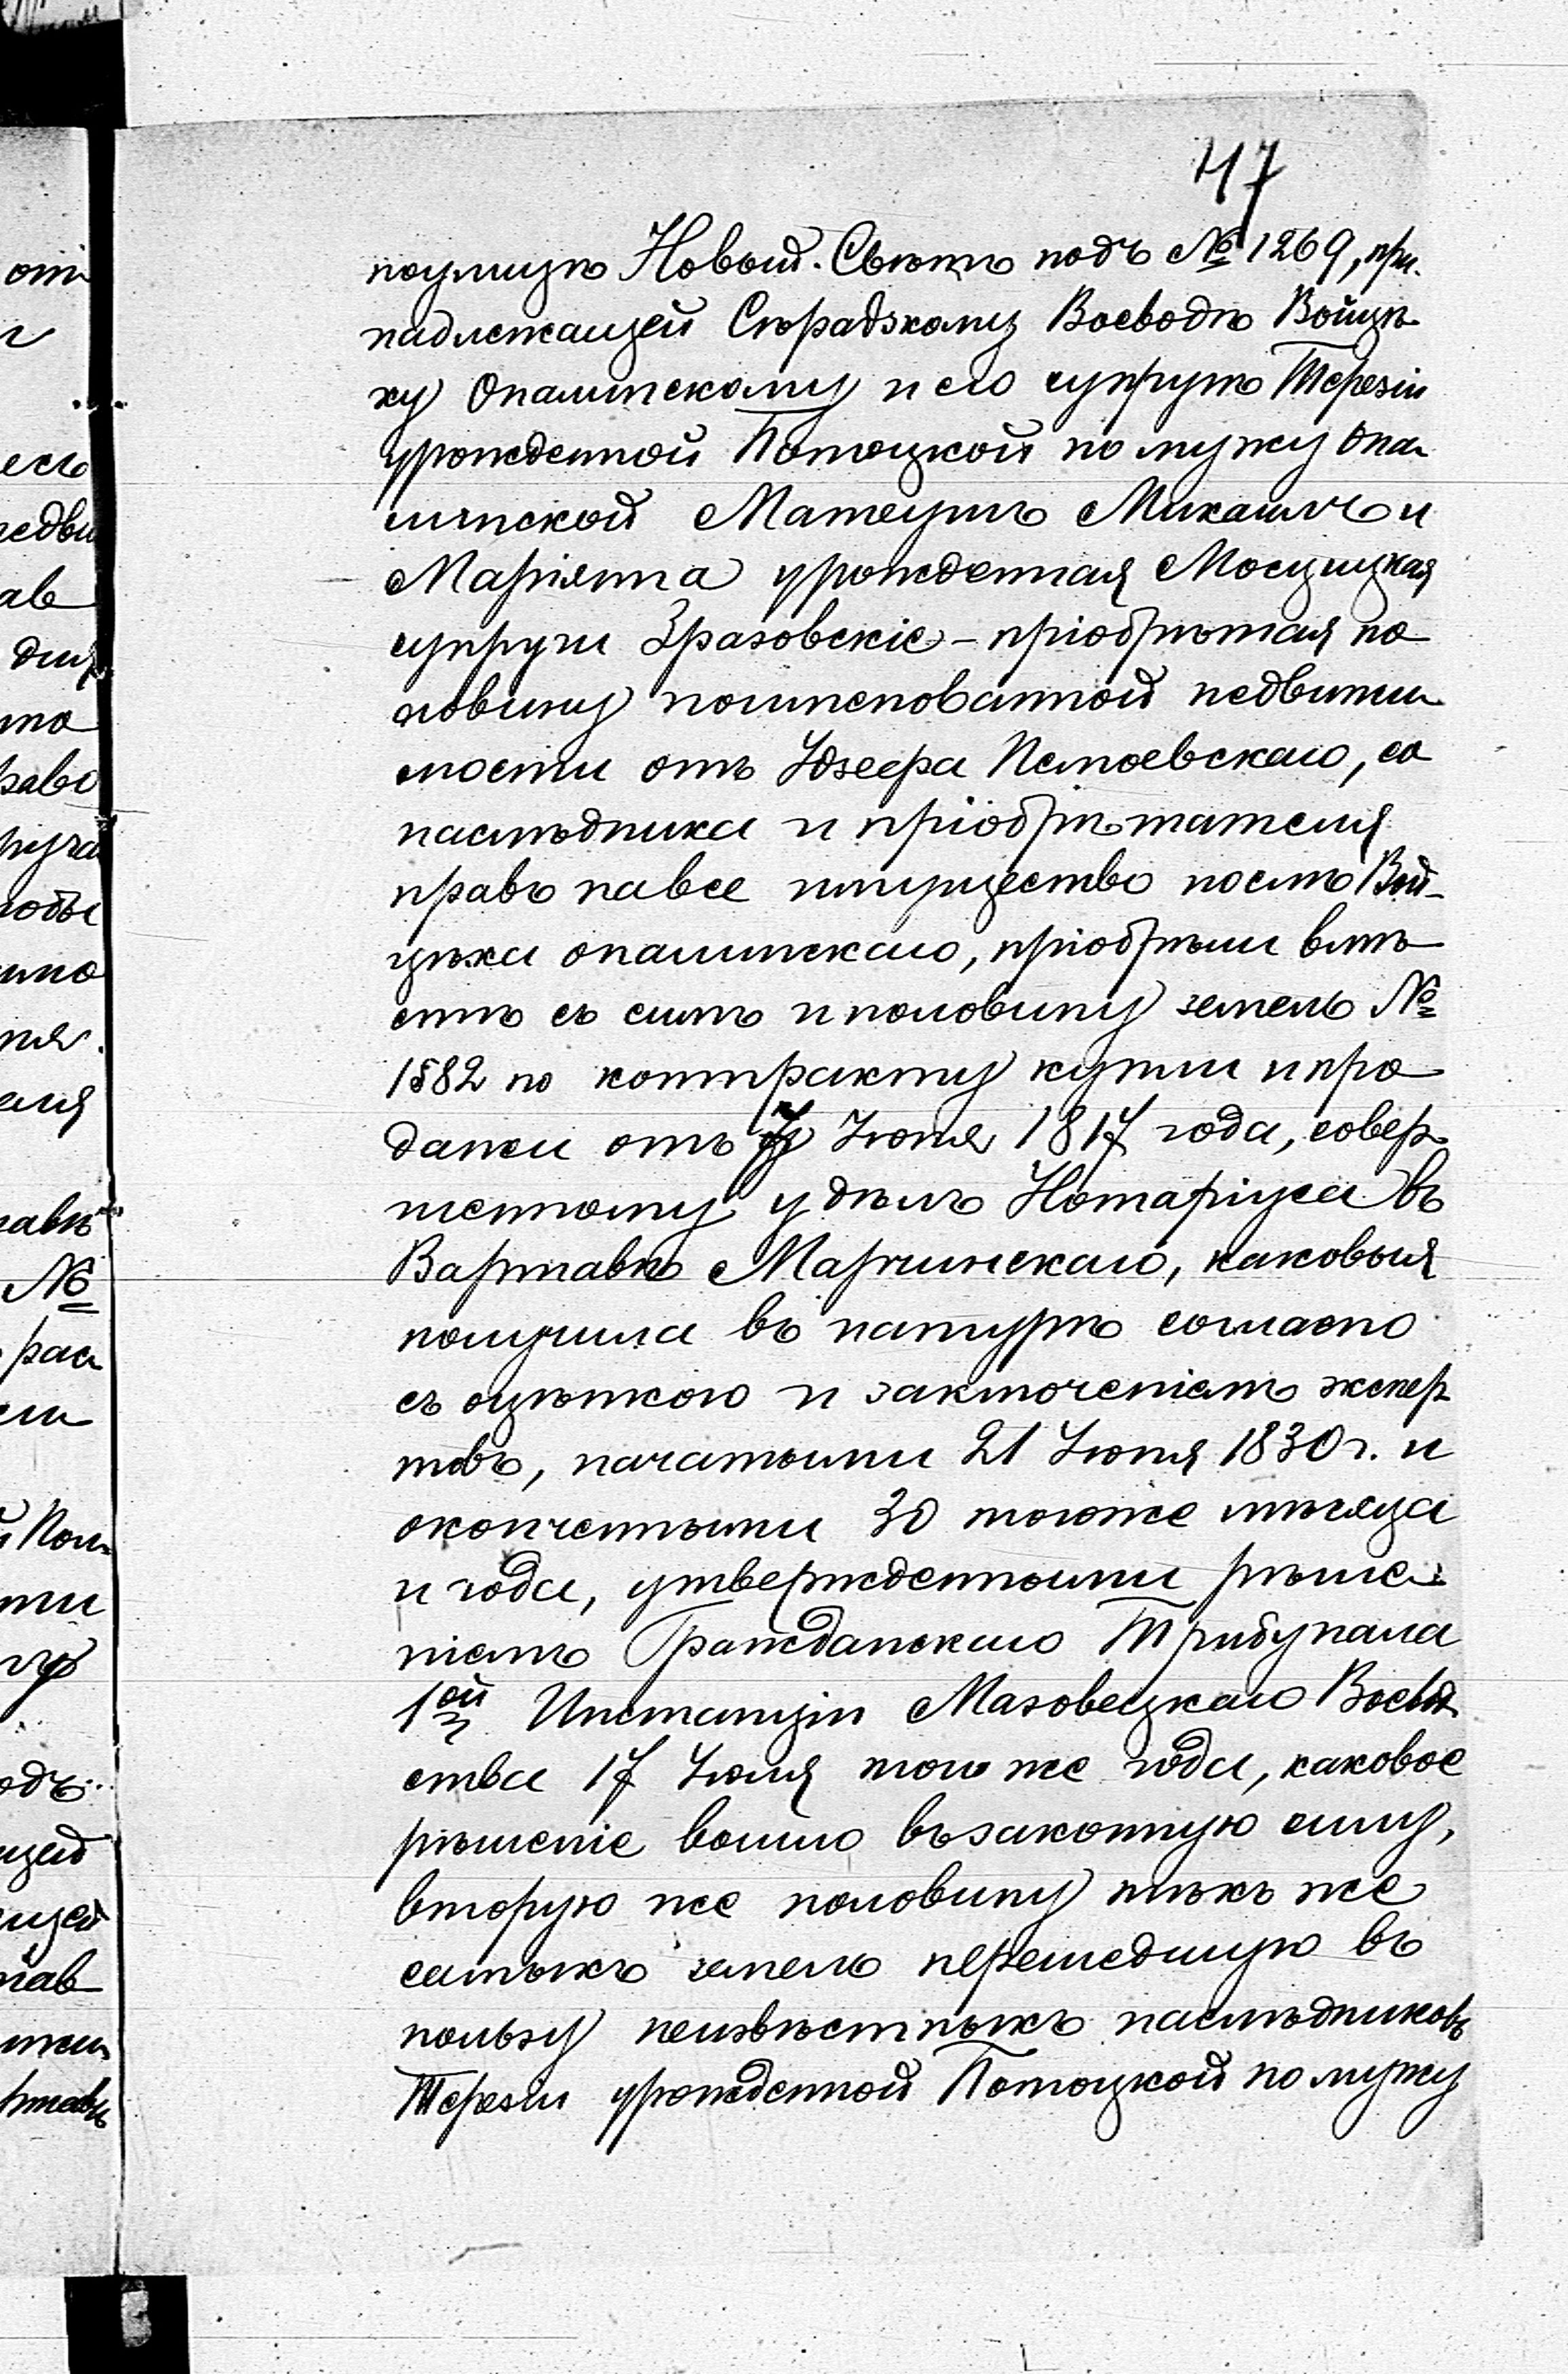 47
поулицѣ Новый-Свѣтъ подъ № 1269, при-
надлежащей Сѣрадзкому Воеводѣ Войцѣ-
ху Опалинскому и его супругѣ Терезіи
урожденной Потоцкой по мужу Опа-
линской Матеушъ Михаилъ и
Маріянна урожденная Мосцицкая
супруги Зразовскіе – пріобрѣтая по-
ловину поименованной недвижи-
мости отъ Юзефа Истоевскаго, со
наслѣдника и пріобрѣтателя
правъ навсе имущество послѣ Вой-
цѣха Опалинскаго, пріобрѣли вмѣ-
стѣ съ симъ и половину земель №
1582 по контракту купли и про-
дажи отъ Іюня 1817 года, совер-
шенному у дѣлъ Нотаріуса въ
Варшавѣ Марчинскаго, каковыя
получила въ натурѣ согласно
съ оцѣнкою и заключеніемъ экспер
товъ, начатыми 21 Іюня 1830 г. и
оконченными 30 тогоже мѣсяца
и года, утвержденными рѣше-
ніемъ Гражданскаго Трибунала
1ой Инстанціи Мазовецкаго Воевод-
ства 17 Іюля того же года, каковое
рѣшеніе вошло въ законную силу,
вторую же половину тѣхъ же
самыхъ земель перешедшую въ
пользу неизвѣстныхъ наслѣдниковъ
Терезіи урожденной Потоцкой по мужу
от
его
недви
ав
№
рас
Пол
одъ
щей
нав